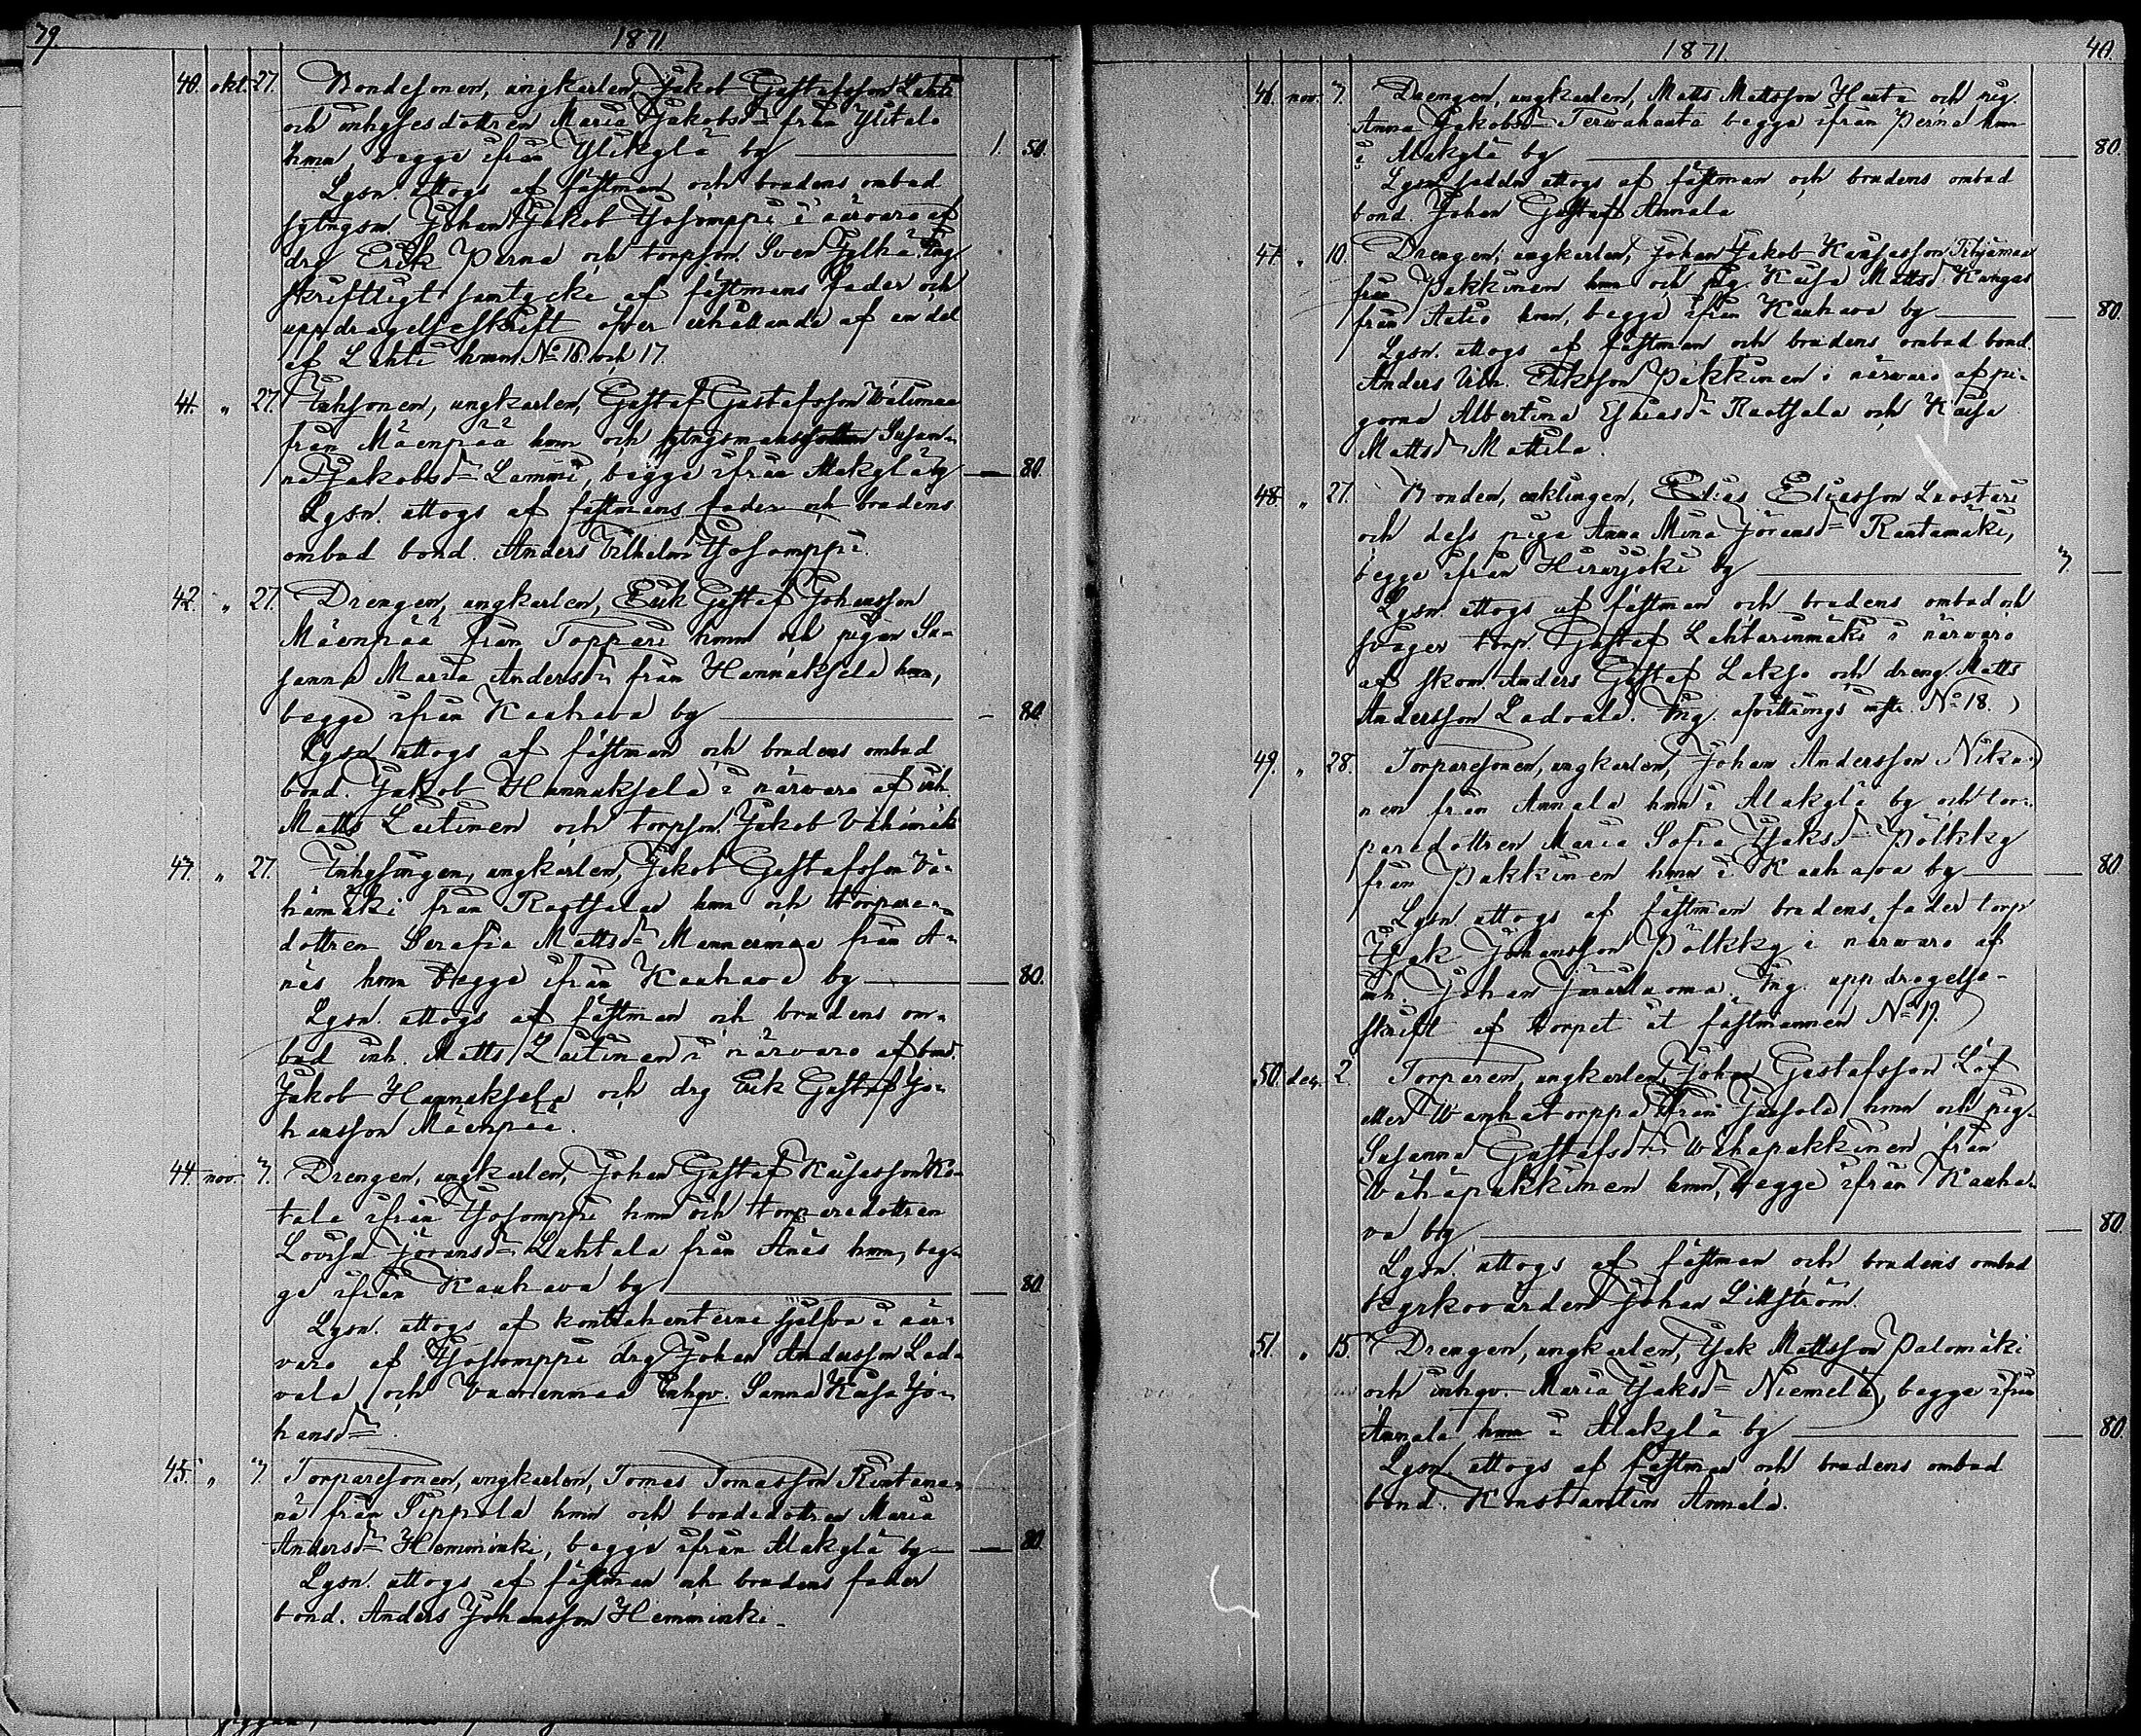 39.
1871
40. okt. 27. Bondesonen, ungkarlen, Jakob Gustafsson Lahti
och inhysesdottren Maria Jakobsdr från Ylitalo
hmn, begge ifrån Ylikylä by 1. 50.
Lysn. uttogs af fästman och brudens ombud
sytngsm. Johan Jakob Yosomppi i närvaro af
drg Erik Perna och torpson. Sven Jylhä. Ing.
skriftligt samtycke af fästmans fader och
uppdragelseskrift öfver erhållande af en del
af Lahti hmn. No 16 och 17.
41. " 27. Inhsonen, ungkarlen, Gustaf Gustafsson Välimaa
från Mäenpää hmn och sytngsmansdottren Susan-
na Jakobsdr Lammi, begge ifrån Alakylä by — 80.
Lysn. uttogs af fästmans fader och brudens
ombud bond. Anders Vilhelm Yosomppi.
42. " 27. Drengen, ungkarlen, Erik Gustaf Johansson
Mäenpää från Toppari hmn och pigan Su-
sanna Maria Andersdr från Hannuksela hmn,
begge ifrån Kauhava by — 80.
Lysn. uttogs af fästman och brudens ombud
bond. Jakob Hannuksela i närvaro af inh.
Matts Laitinen och torpson. Jakob Vähämäki
43. " 27. Inhysingen, ungkarlen, Jakob Gustafsson Vä-
hämäki från Raotsala hmn och torpare-
dottren Serafia Mattsdr Mannermaa från A-
näs hmn begge ifrån Kauhava by — 80.
Lysn. uttogs af fästman och brudens om-
bud inh. Matts Laitinen i närvaro af bond.
Jakob Hannuksela och drg Erik Gustaf Jo-
hansson Mäenpää.
44. nov. 3. Drengen, ungkarlen, Johan Gustaf Kaisasson Ko-
tala ifrån Yosomppi hmn och torparedottren
Lovisa Jöransdr Lahtala från Anäs hmn, beg-
ge ifrån Kauhava by — 80
Lysn. uttogs af kontrahenterne sjelfva i när-
varo af Yosomppi drg Johan Andersson Lad-
vala och Vaarenmaa inhqv. Sanna Kaisa Jo-
hansdr.
45. " 3. Torparesonen, ungkarlen, Tomas Tomasson Rintama-
nä från Pippola hmn och bondedottren Maria
Andersdr Hemminki, begge ifrån Alakylä by — 80
Lysn. uttogs af fästman och brudens fader
bond. Anders Johansson Hemminki.
1871.
40.
46. nov. 7. Drengen, ungkarlen, Matts Mattsson Hauta och pig.
Anna Jakobsdr Terwahauta begge ifrån Perna hmn
i Alakylä by — 80.
Lysnsedeln uttogs af fästman och brudens ombud
bond. Johan Gustaf Annala
47. " 10. Drengen, ungkarlen, Johan Jakob Kaisasson
från Pakkinen hmn och pig. Kaisa Mattsdr Kangas
från Aatio hmn, begge ifrån Kauhava by — 80.
Lysn. uttogs af fästman och brudens ombud bond.
Anders Vilh. Eriksson Pakkinen i närvaro af pi-
gorna Albertina Esaiasdr Raotsala och Kaisa
Mattsdr Mattila.
48. " 27. Bonden, enklingen, Elias Eliasson Luostari
och dess piga Anna Mina Jöransdr Rantamäki,
begge ifrån Hirvijoki by 3 —
Lysn. uttogs af fästman och brudens ombud och
svåger torp. Gustaf Lahtarinmäki i närvaro
af skom. Anders Gustaf Lakso och dreng. Matts
Andersson Ladvala. Ing. afvittrings No 18.
49. " 28. Torparesonen, ungkarlen, Johan Andersson Nika-
nen från Annala hmn i Alakylä by och tor-
paredottren Maria Sofia Isaksdr Pölkky
från Pakkinen hmn i Kauhava by — 80
Lysn. uttogs af fästman brudens fader torp
Isak Johansson Pölkky i närvaro af
inh. Johan. Ing. uppdragelse-
skrift af torpet åt fästmannen No 19.
50 dec. 2. Torparen, ungkarlen, Johan Gustafsson Löf
eller Wanhatorppa från hmn och pig.
Susanna Gustafsdr Wähäpakkinen från
Wähäpakkinen hmn, begge ifrån Kauha-
va by — 80
Lysn. uttogs af fästman och brudens ombud
kyrkovärden Johan Lillström.
51. " 15 Drengen, ungkarlen, Isak Mattsson Palomäki
och inhqv. Maria Isaksdr Niemelä, begge ifrån
Annala hmn i Alakylä by — 80.
Lysn. uttogs af fästman och brudens ombud
bond. Konstantin Annala.